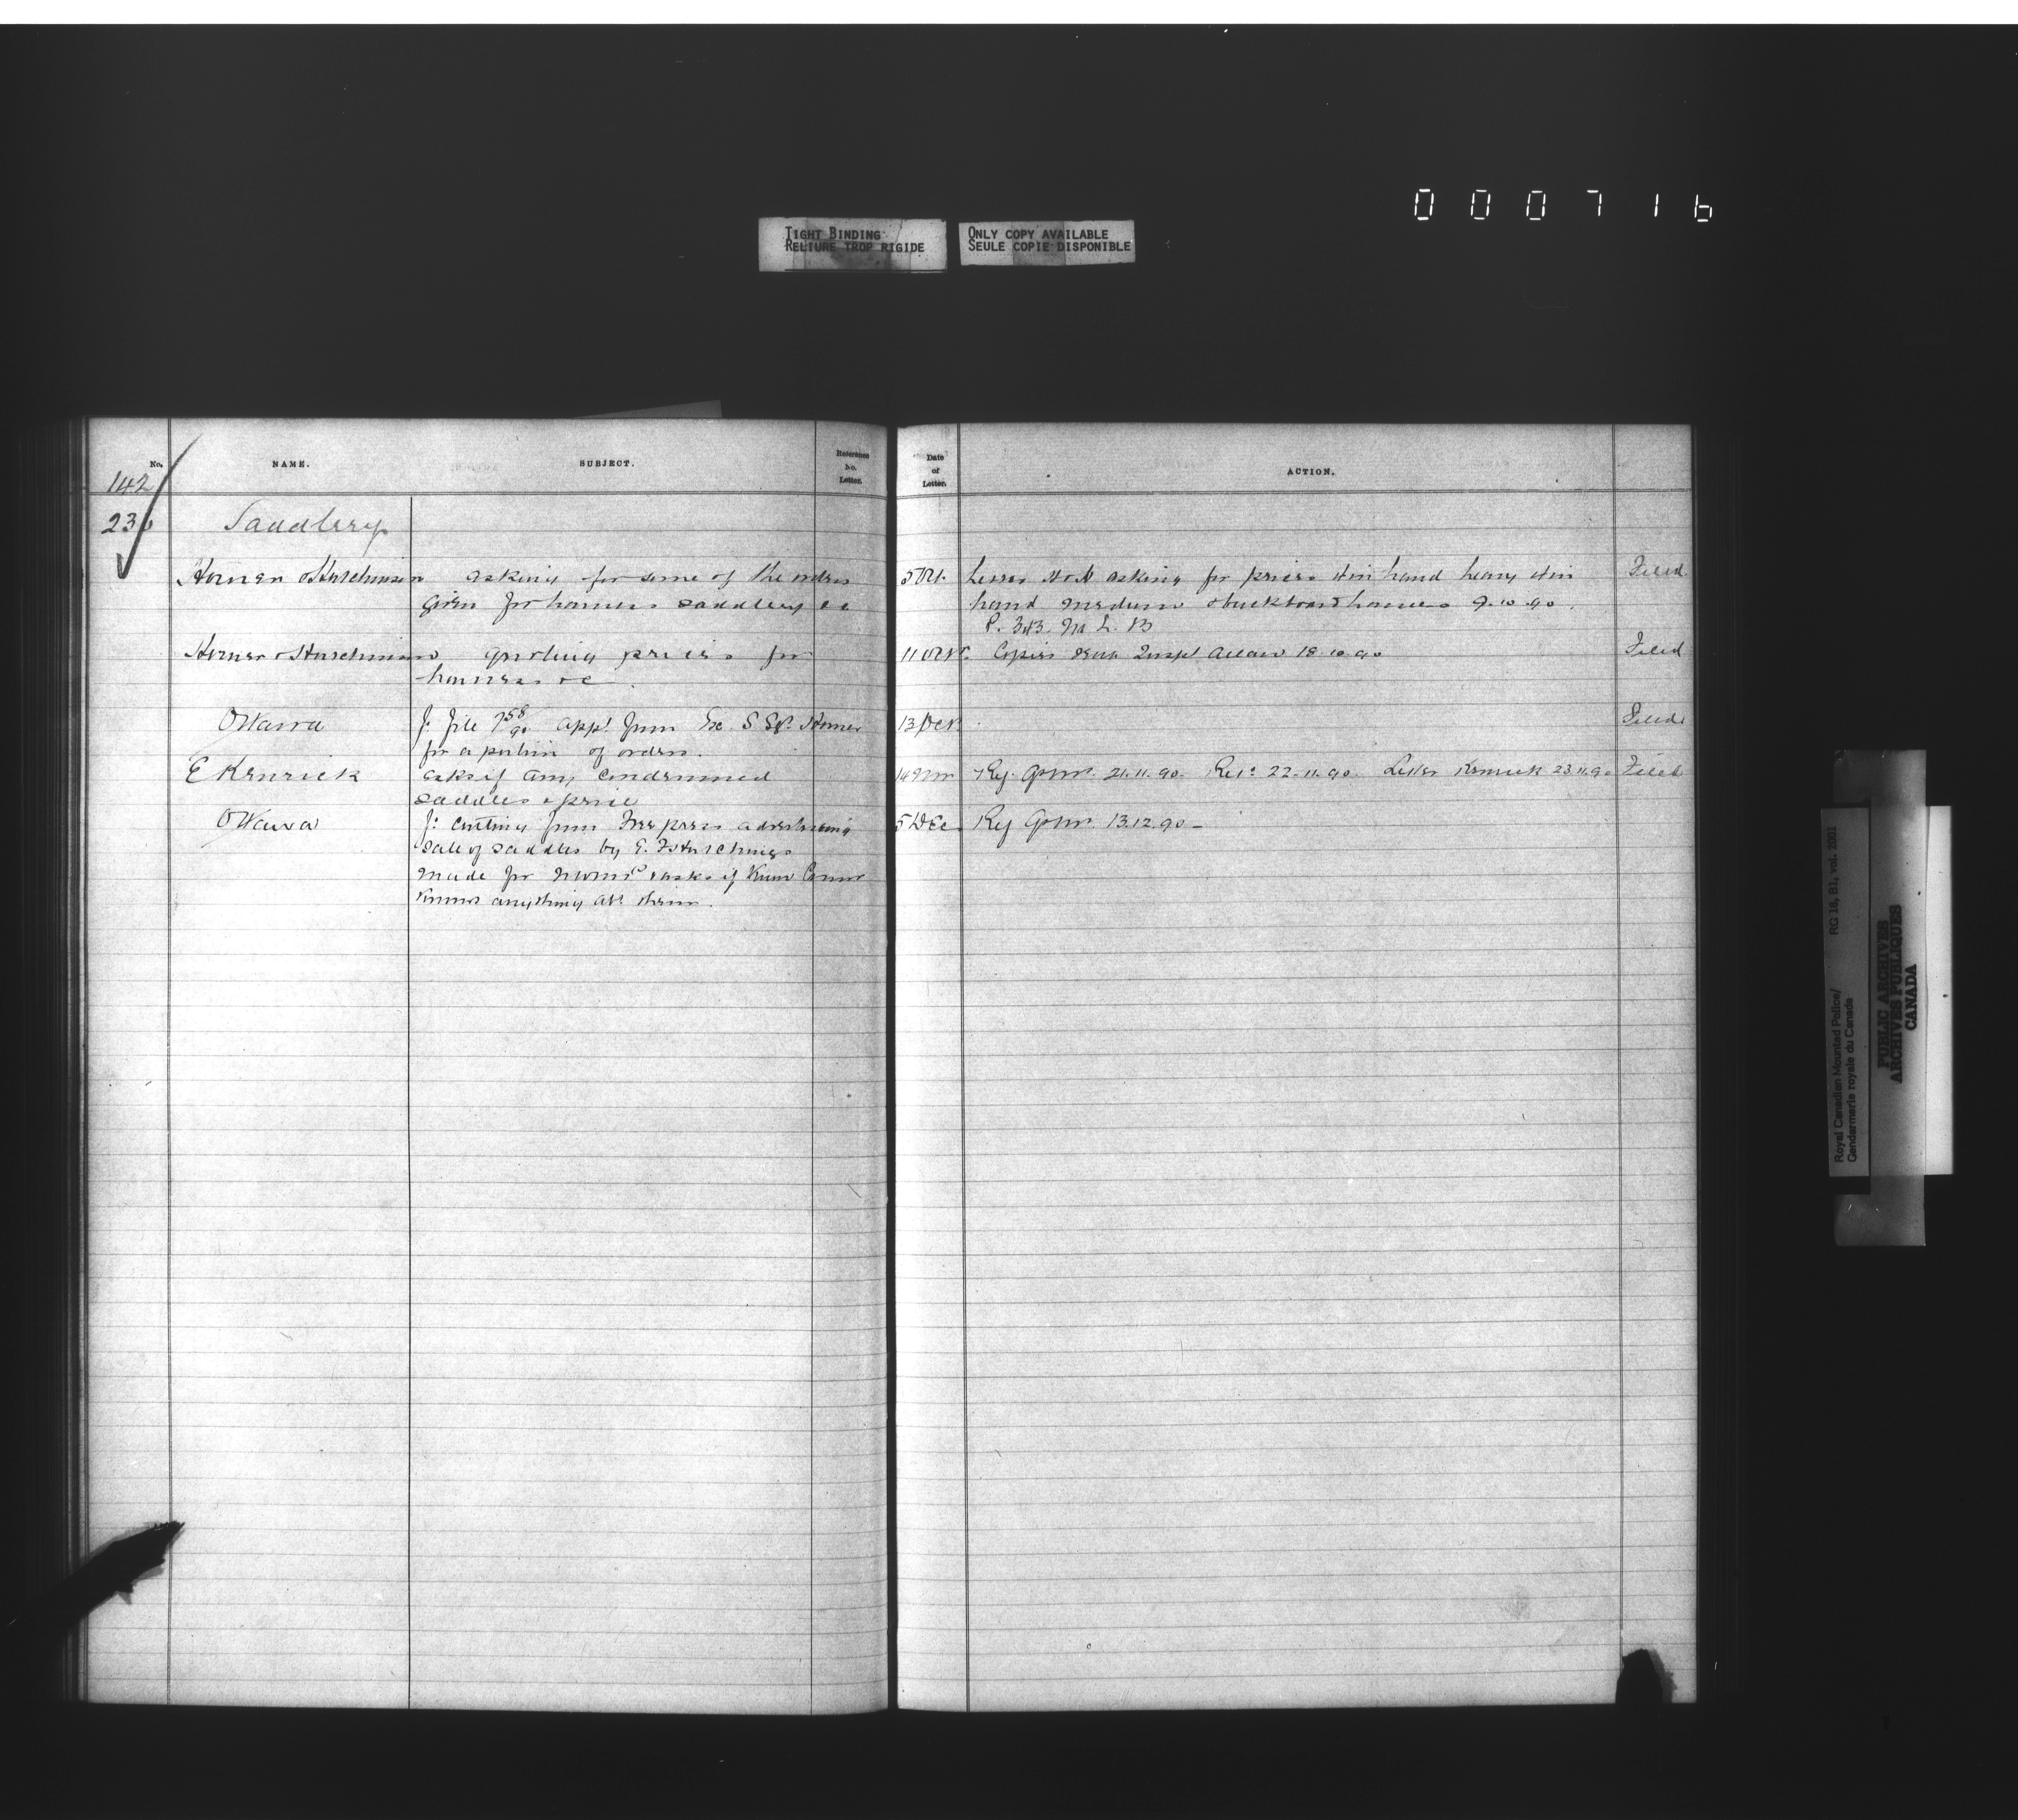 0 0 0 7 1 6
TIGHT BINDING
RELIURE TROP RIGIDE
ONLY COPY AVAILABLE
SEULE COPIE DISPONIBLE
No. NAME. SUBJECT. Reference No. Letter. Date of Letter. ACTION.
142
23 Saddlery
Horner & Hutchinson asking for some of the orders 5 Oct. Letter H & H asking for prices 4 in hand heavy 4 in Filed
given for harness saddlery &c hand medium & buckboard harness 9.10.90.
P. 343. L. B
Horner & Hutchinson quoting prices for 11 Oct. Copies Inspr Allan 18.10.90 Filed
harness &c.
Ottawa f: file 758/90 appl from Ex. S. Sgt. Horner 13 Oct. Filed
for a portion of orders.
E Kenrick asks if any condemned 14 Nov Ref. Comr. 21.11.90. Retd 22.11.90. Letter Kenrick 23.11.90 Filed
saddles & price
Ottawa f: cutting from Free press advertising 5 Dec. Ref Comr. 13.12.90-
sale of saddles by E. F Hutchings
made for NWMP & asks if Comr
knows anything abt them.
Royal Canadian Mounted Police/ RG 18, B1, vol. 2001
Gendarmerie royale du Canada
PUBLIC ARCHIVES
ARCHIVES PUBLIQUES
CANADA